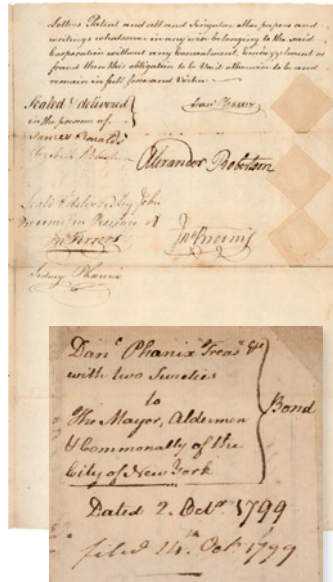 Letters Patent and all and Singular other papers and
writings whatsoever in any wise belonging to the said
Corporation without any Concealment, Embezzlement or
fraud then this obligation to be Void otherwise to be and
remain in full force and Virtue
Sealed & delivered
in the presence of
James Ronalds
Elizabeth
Danl Phœnix
Alexander Robertson
Seald & delivered by John
Broome in Presence of
Jno Broome
Sidney Phœnix
Danl Phœnix Treasr &c
with two Sureties
to
The Mayor, Aldermen
& Commonalty of the
City of New York
Bond
Dated 2. Octr 1799
filed 14th Octr 1799